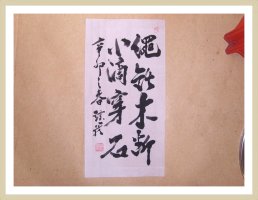 绳锯木断
水滴穿石
辛卯之春